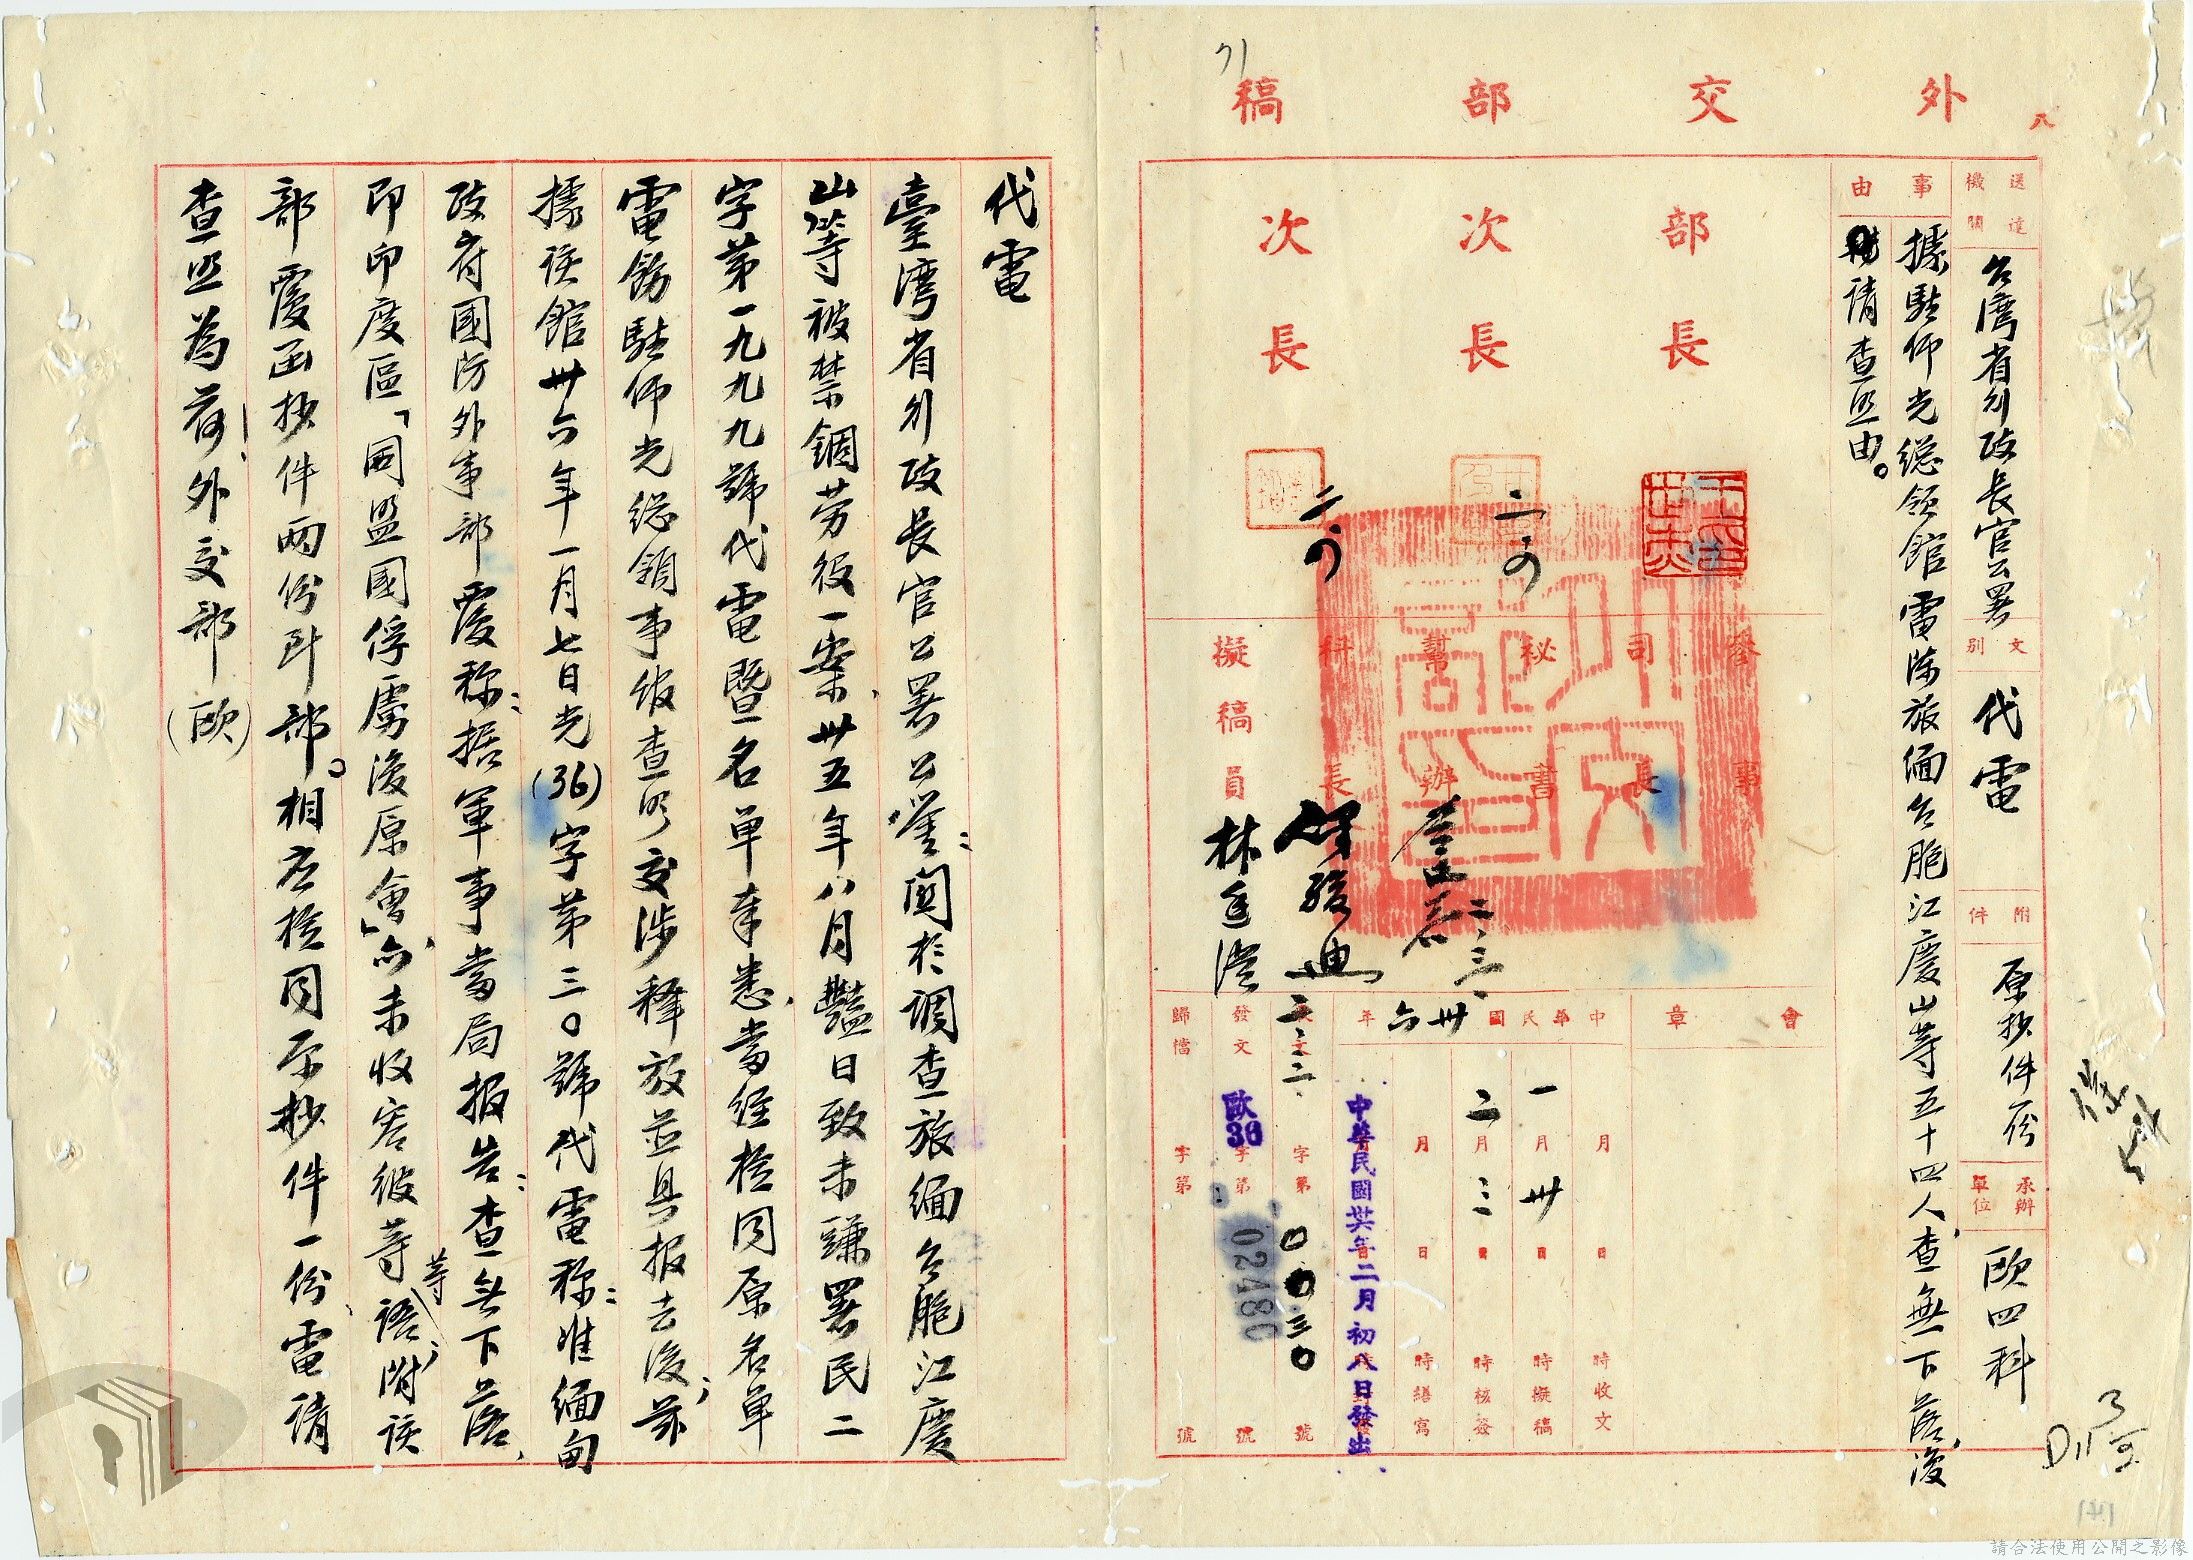 外交部稿
八
71
送達機關
台灣省行政長官公署
文別
代電
附件
原抄件一份
承辦單位
歐四科
事由
據駐仰光總領館電陳旅緬台胞江慶山等五十四人、查無下落、復
請查照由。
部長
次長
次長
二、
二、
參事
司長
秘書
幫辦
科長
擬稿員
二、三、
二、三、
林
會章
中華民國卅六年
月 日 時收文
一月卅日 時擬稿
二月三日 時核簽
月 日 時繕寫
中華民國卅六年二月初八日發出
收文 字第〇〇三〇號
發文 歐36字第02480號
歸檔 字第 號
代電
臺灣省行政長官公署公鑒：關於調查旅緬台胞江慶
山等被禁錮勞役一案、卅五年八月豔日致未謙署民二
字第一九九九號代電暨名單奉悉、當經檢同原名單
電飭駐仰光總領事館查明交涉釋放並具报去後；茲
據該館卅六年一月七日光(36)字第三〇號代電称：准緬甸
政府國防外事部覆称：据軍事當局报告：查無下落、
即印度區「同盟國俘虜復原會」亦未收容彼等等語；附該
部覆函抄件兩份到部。相應檢同原抄件一份、電請
查照為荷！外交部(歐)
D11
請合法使用公開之影像